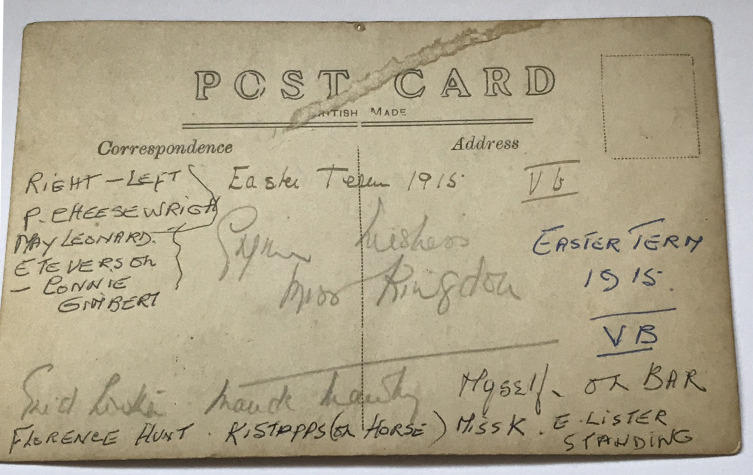 POST CARD
BRITISH MADE
Correspondence
Address
RIGHT - LEFT
P. CHEESEWRIGH
MAY LEONARD.
ETEVERSON
- CONNIE
GIMBERT
Easter Term 1915
VB
Miss Kingdon
EASTER TERM
1915.
VB
Enid
Maude
Myself. on BAR
FLORENCE HUNT . K STAPPS (on HORSE) MISS K . E. LISTER
STANDING